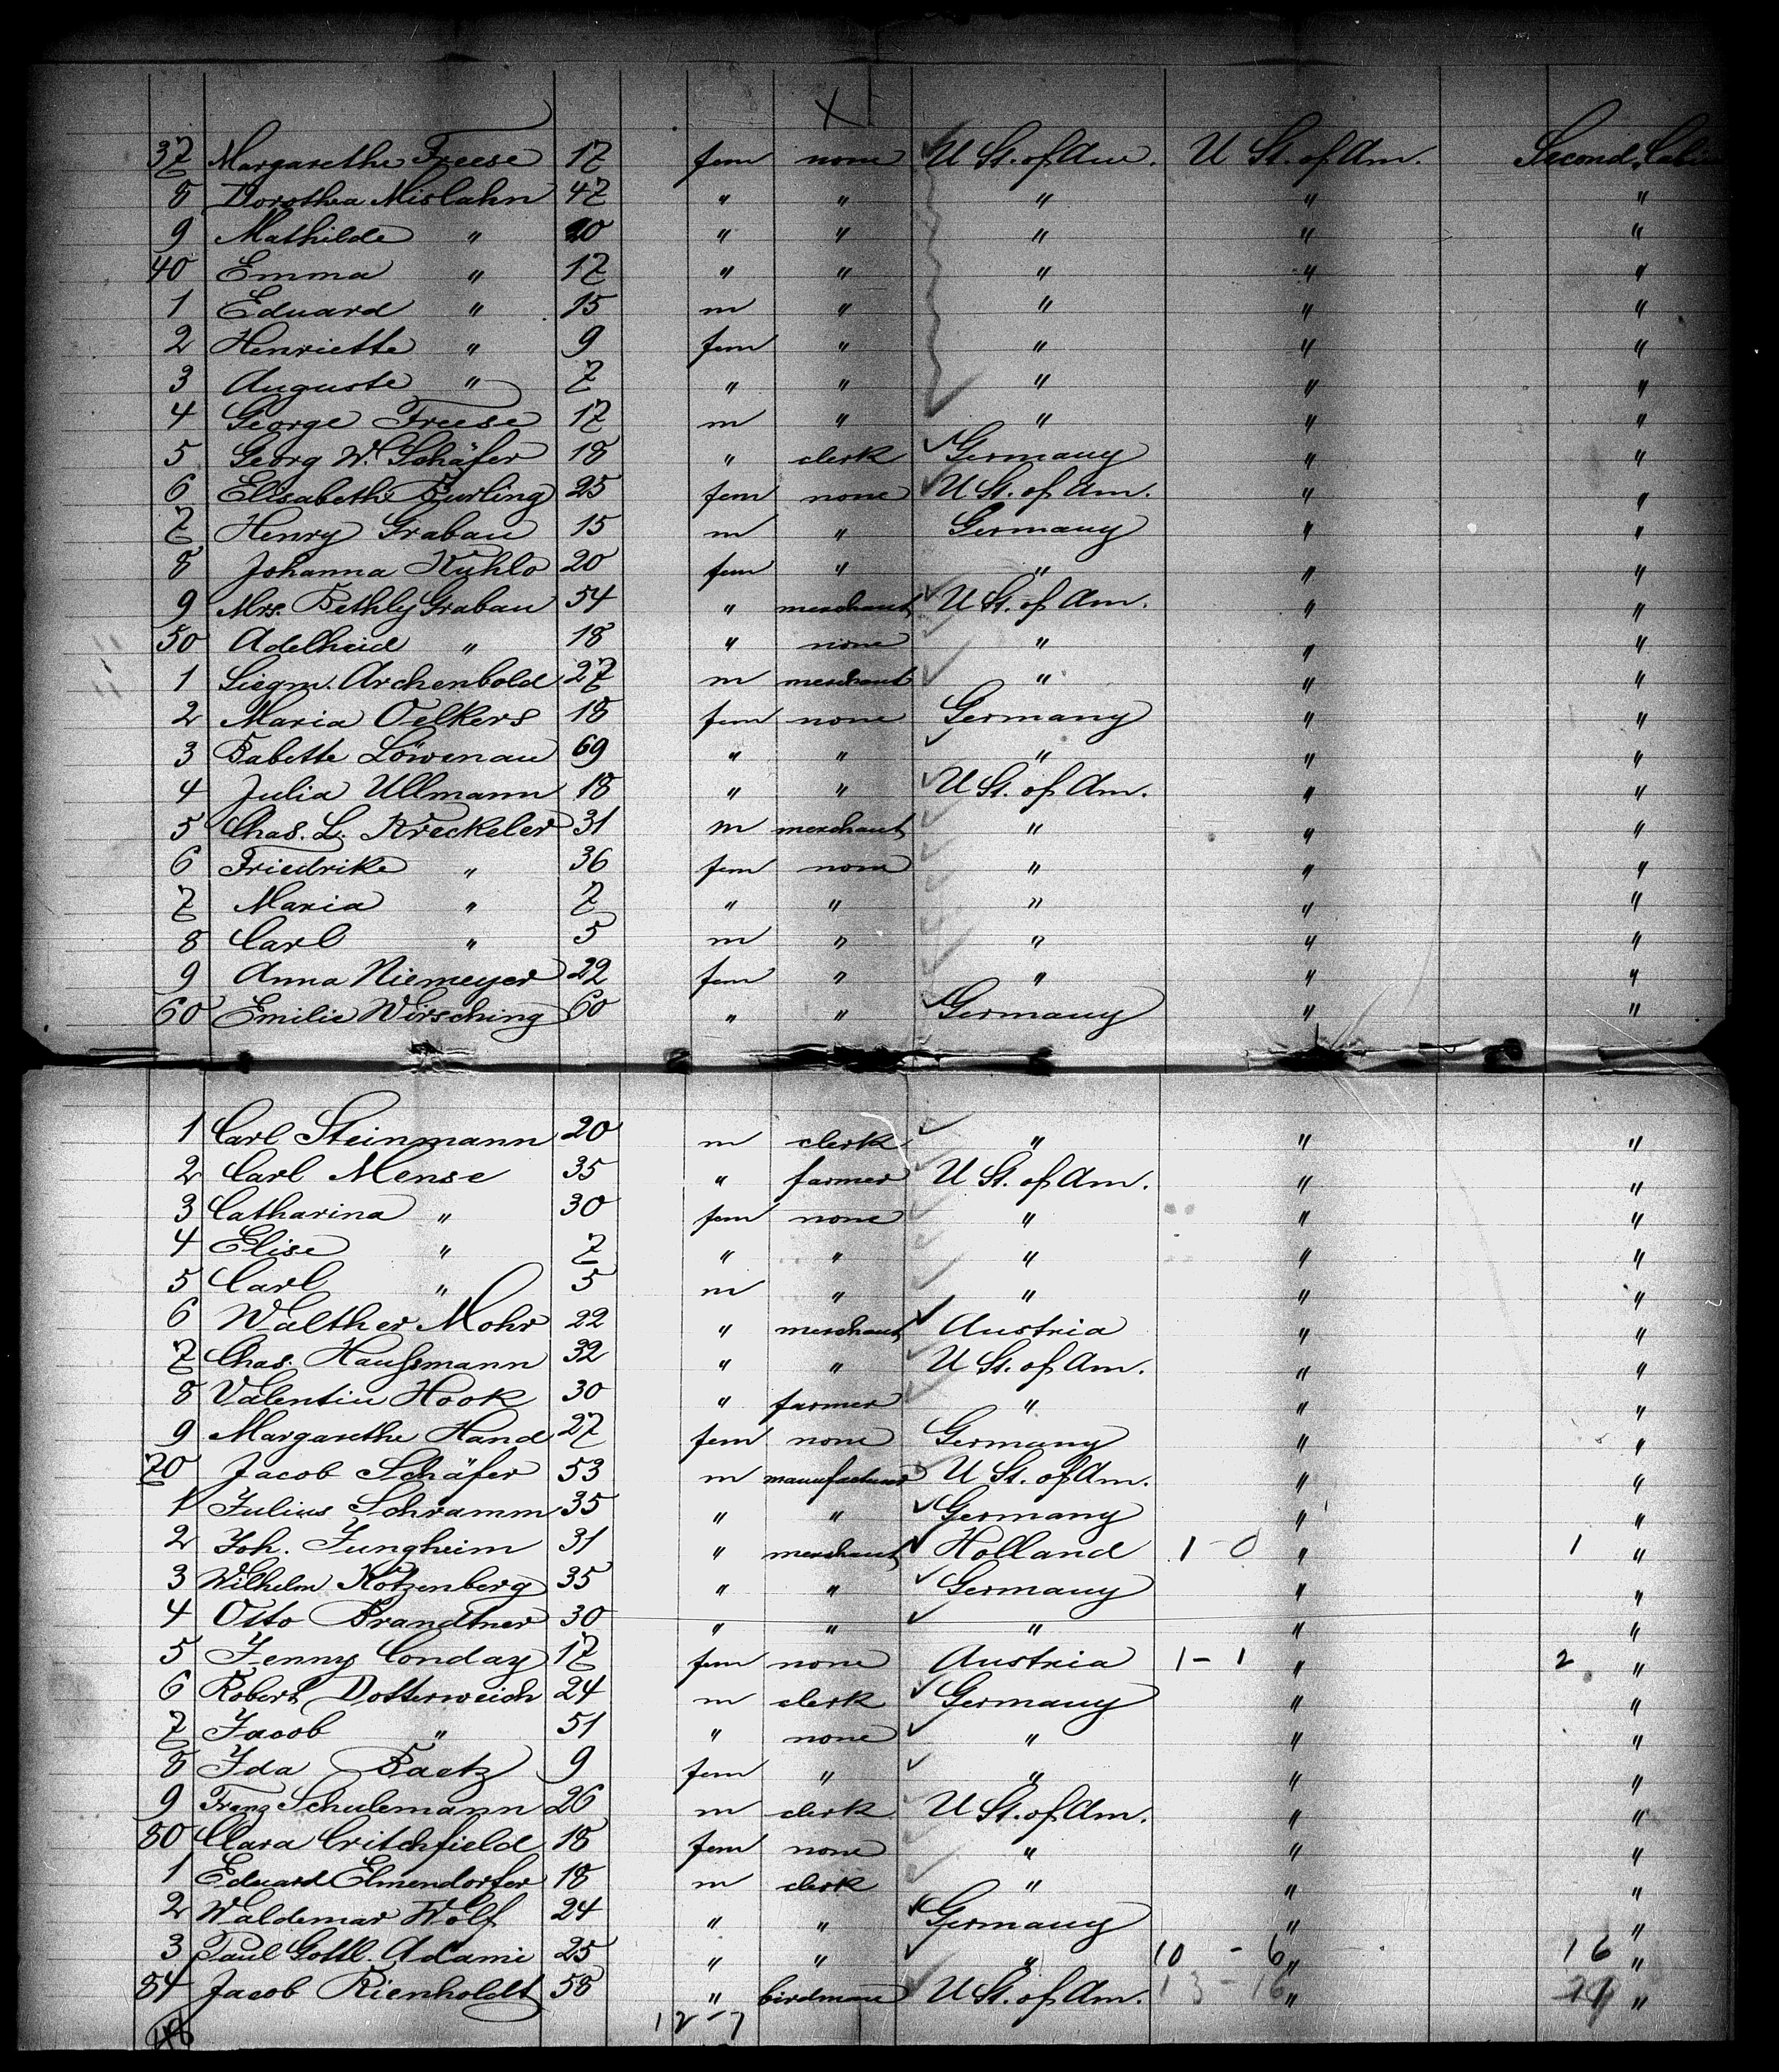 X
37 Margarethe Freese 17 fem none U St. of Am. U St. of Am. Second Cabin
8 Dorothea Mislahn 47 " " " " "
9 Mathilde " 20 " " " " "
40 Emma " 17 " " " " "
1 Eduard " 15 m " " " "
2 Henriette " 9 fem " " " "
3 Auguste " 7 " " " " "
4 George Freese 17 m " " " "
5 Georg W. Schäfer 18 " clerk Germany " "
6 Elisabeth Burling 25 fem none U. St. of Am. " "
7 Henry Grabau 15 m " Germany " "
8 Johanna Kuhlo 20 fem " " " "
9 Mrs. Bethly Grabau 54 " merchant U St. of Am. " "
50 Adelheid " 18 " none " " "
1 Siegm. Archenbold 27 m merchant " " "
2 Maria Oelkers 18 fem none Germany " "
3 Babette Löwenau 69 " " " " "
4 Julia Ullmann 18 " " U St. of Am. " "
5 Chas. L. Kreckeler 31 m merchant " " "
6 Friedrike " 36 fem none " " "
7 Maria " 7 " " " " "
8 Carl " 5 m " " " "
9 Anna Niemeyer 22 fem " " " "
60 Emilie Wirsching 60 " " Germany " "
1 Carl Steinmann 20 m clerk " " "
2 Carl Mense 35 " farmer U St. of Am. " "
3 Catharina " 30 fem none " " "
4 Elise " 7 " " " " "
5 Carl " 5 m " " " "
6 Walther Mohr 22 " merchant Austria " "
7 Chas. Haußmann 32 " " U St. of Am. " "
8 Valentin Hook 30 " farmer " " "
9 Margarethe Hand 27 fem none Germany " "
70 Jacob Schäfer 53 m manufacturer U St. of Am. " "
1 Julius Schramm 35 " " Germany " "
2 Joh. Jungheim 31 " merchant Holland 1 - 0 " 1 "
3 Wilhelm Kotzenberg 35 " " Germany " "
4 Otto Brandtner 30 " " " " "
5 Jenny Conday 17 fem none Austria 1 - 1 " 2 "
6 Robert Dotterweich 24 m clerk Germany " "
7 Jacob " 51 " none " " "
8 Ida Baetz 9 fem " " " "
9 Franz Schulemann 26 m clerk U St. of Am. " "
80 Clara Critchfield 18 fem none " " "
1 Eduard Elmendorfer 18 m clerk " " "
2 Waldemar Wolf 24 " " Germany " "
3 Paul Gottl. Adami 25 " " " 10 - 6 " 16 "
84 Jacob Rienholdt 58 " birdman U St. of Am. 13 - 16 " "
48 12-7 1